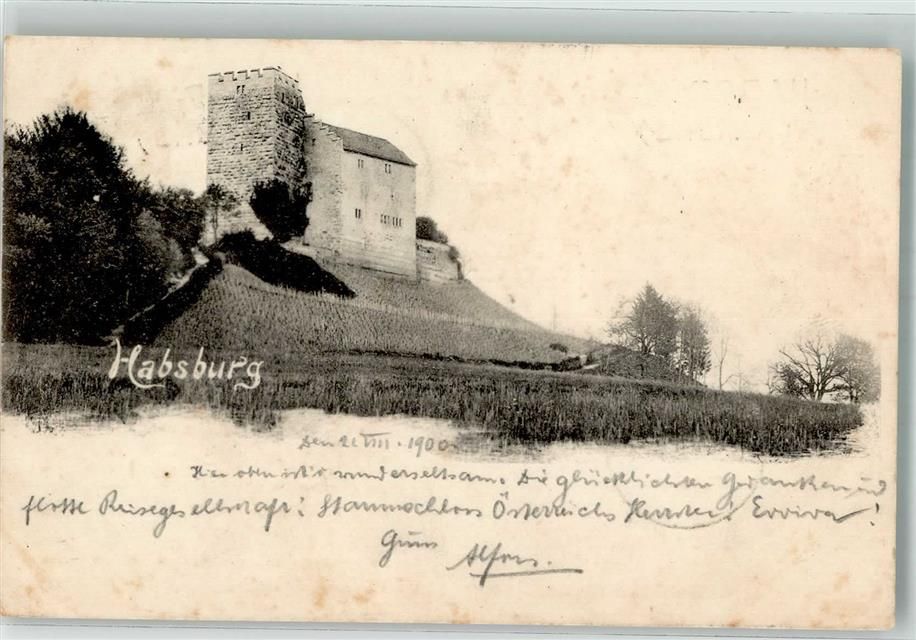 Habsburg
Den 21 VIII. 1900
Hier oben ist's wunderseltsam. Die glücklichsten Gedanken und
flotte Reisegesellschaft! Stammschloss Österreichs Herrscher! Evviva!
Alfons.